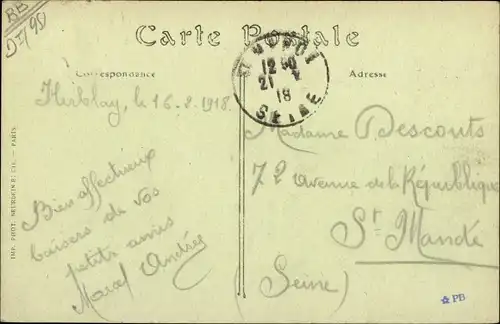 BB
Carte Postale
Correspondance
Adresse
12 50
21
18
SEINE
Herblay, le 16-8-1918
Bien affectueux
baisers de vos
petits amis
Marcel Andrée
Madame P. Descouts
72 avenue de la République
St Mandé
(Seine)
IMP. PHOT. NEURDEIN ET CIE. — PARIS.
PB